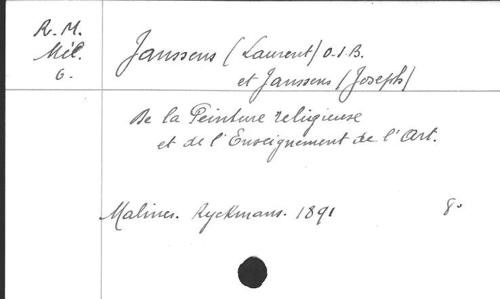 R. M.
Mél.
6.
Janssens (Laurent) O.S.B.
et Janssens (Joseph)
De la Peinture religieuse
et de l'Enseignement de l'Art.
Malines. Ryckmans. 1891 8°